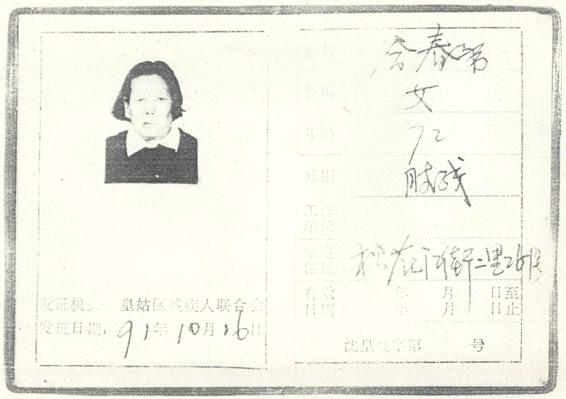 发证机关: 皇姑区残疾人联合会
发证日期: 91年10月16日
姓名
性别 女
年龄 72
残别 肢残
工作
单位
家庭
住址 松花江街二里26号
有效 年 月 日至
日期 年 月 日止
沈皇残字第 号